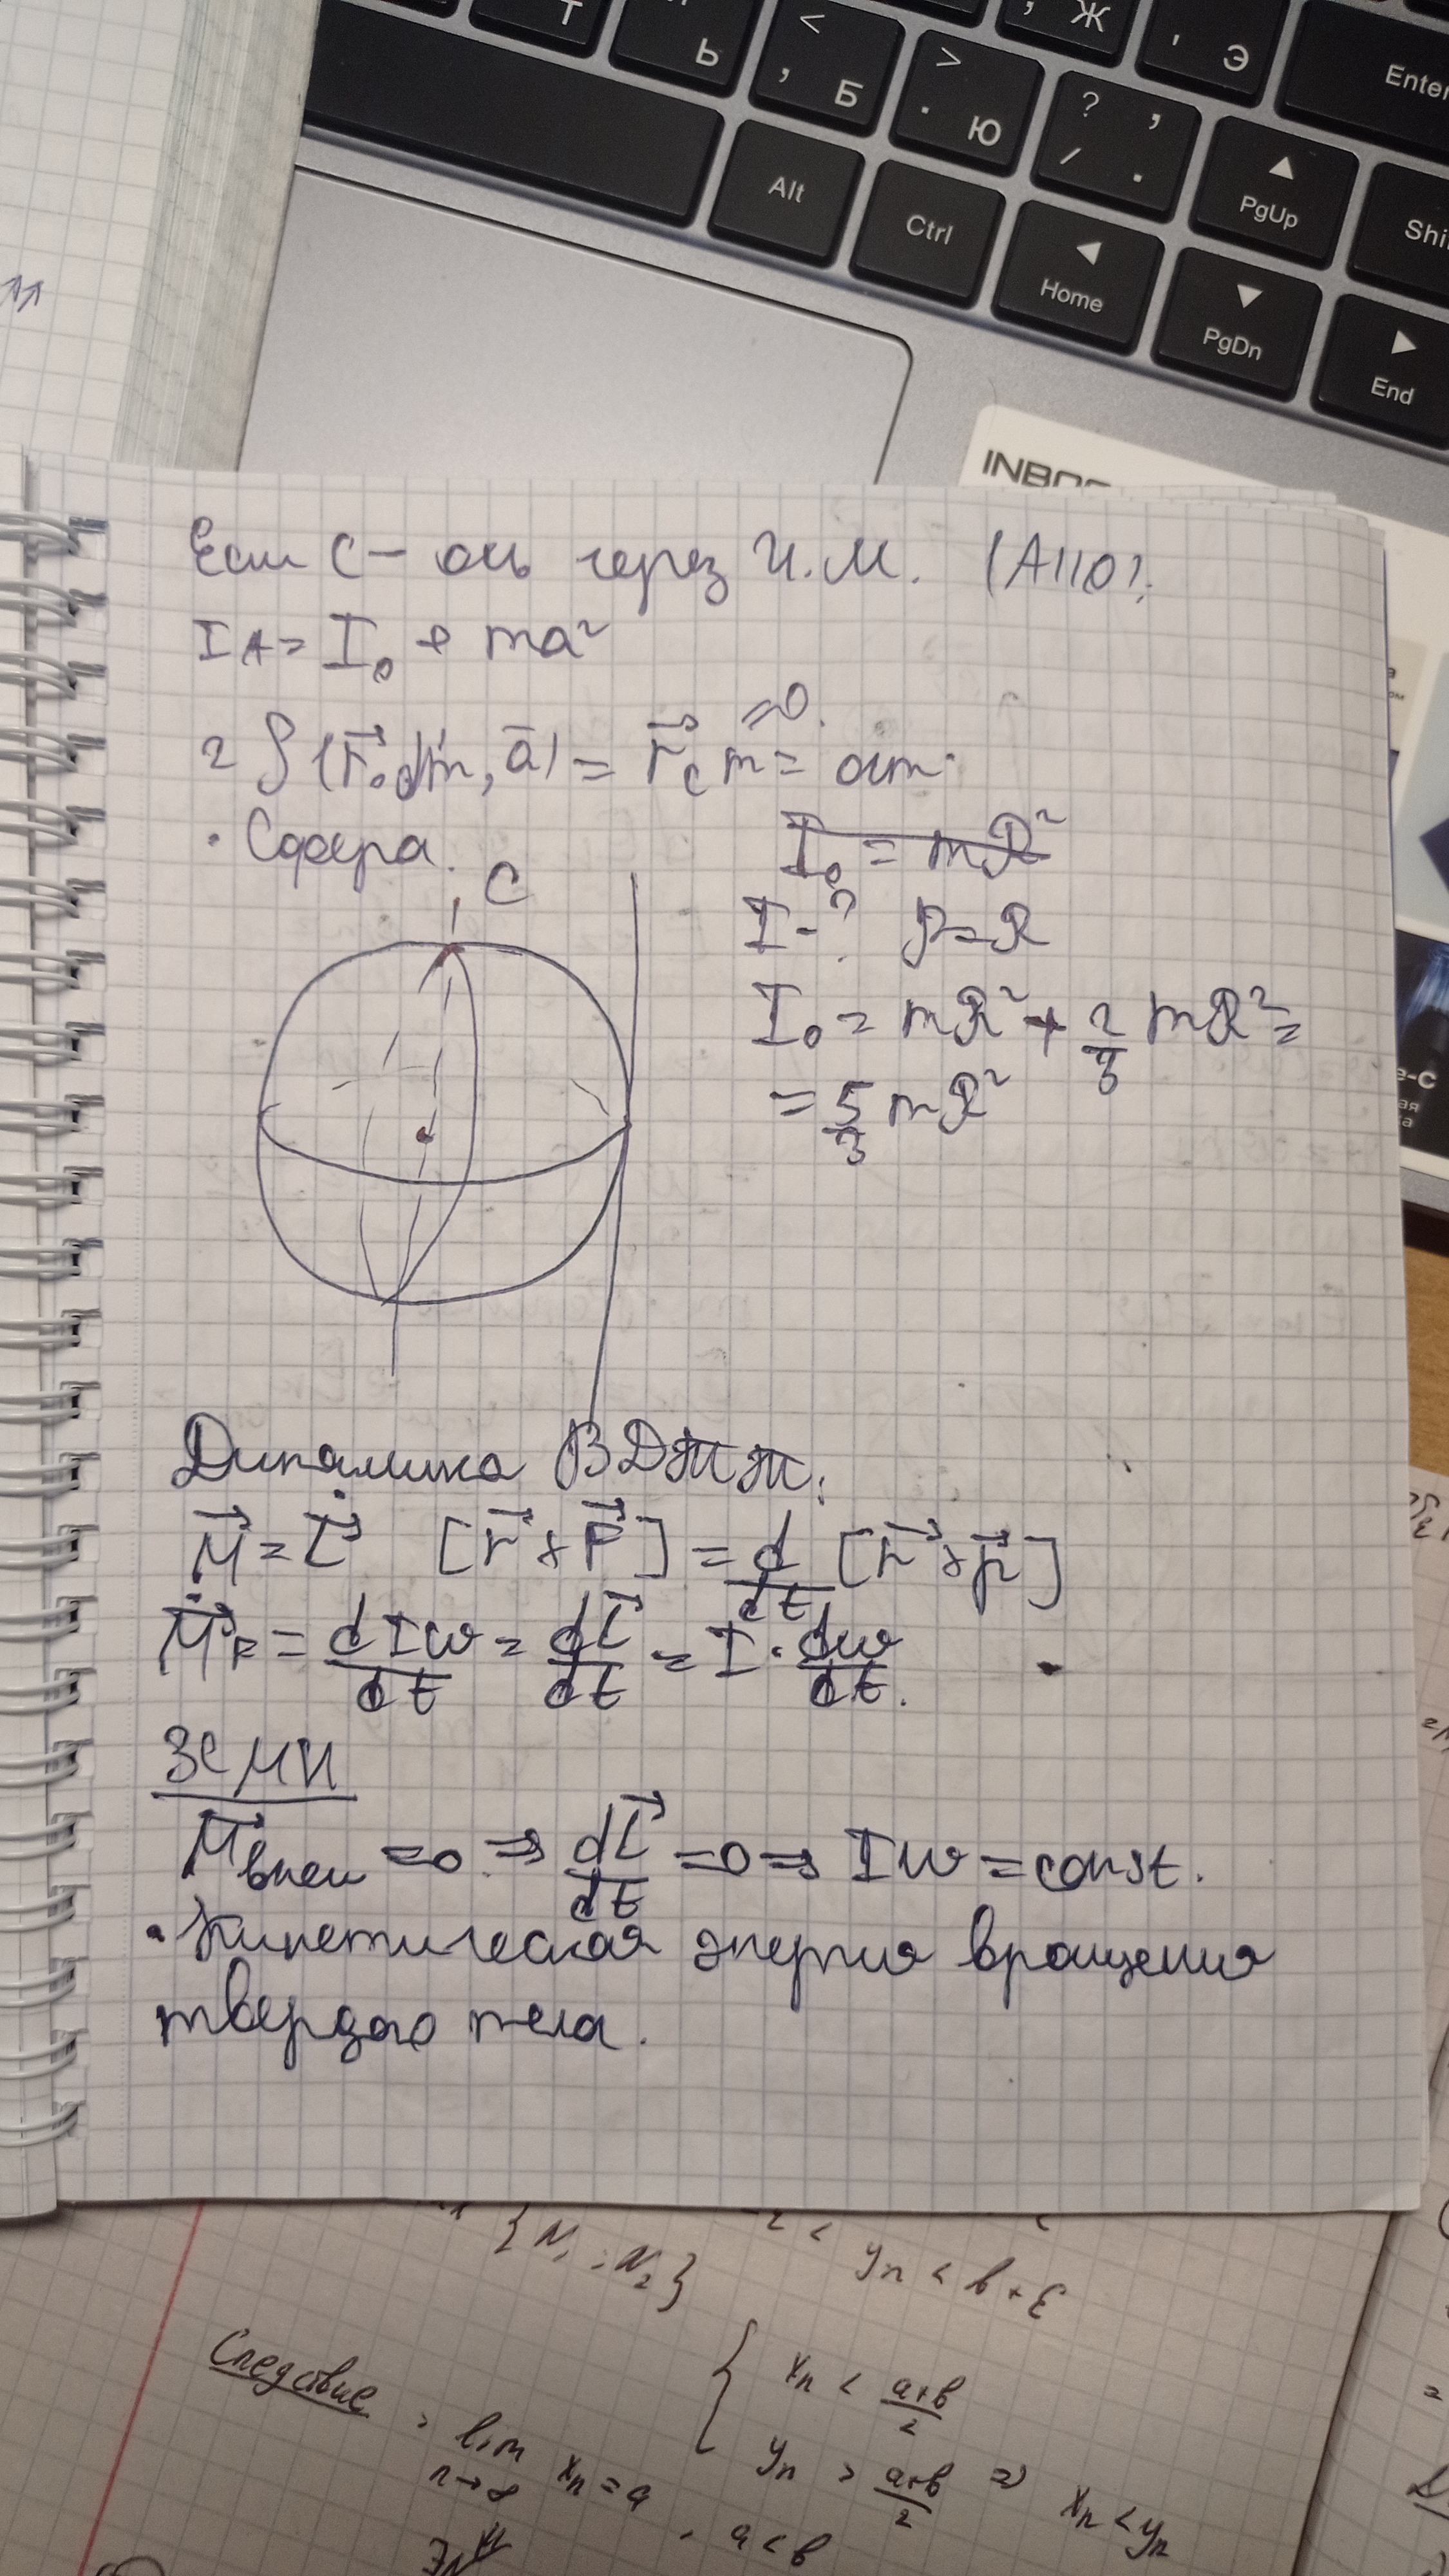 Т
Ь
< , Б
> . Ю
? / , .
Ж
Э
Enter
Alt
Ctrl
Home
PgUp
PgDn
End
Shi
INBO
Если C — ось через Ц.М. (A||O).
I_A = I_0 + ma²
2 ∫(r⃗₀dm, ā) = r⃗_c m = =0.
· Сфера.
C
I_0 = mR²
I - ? R
I_0 = mR² + 2/3 mR² =
= 5/3 mR²
Динамика ВДЖТТ:
M⃗ = L⃗̇ [r⃗ × F⃗] = d/dt [r⃗ × p⃗]
M⃗_F = dIω/dt = dL⃗/dt = I · dω/dt.
ЗСМИ
M⃗внеш = 0 ⇒ dL⃗/dt = 0 ⇒ Iω = const.
· Кинетическая энергия вращения
твердого тела.
{N₁; N₂}
yₙ < b + ε
Следствие: lim n→∞ xₙ = a, a < b
{ xₙ < a+b/2
yₙ > a+b/2 ⇒ xₙ < yₙ
∃N